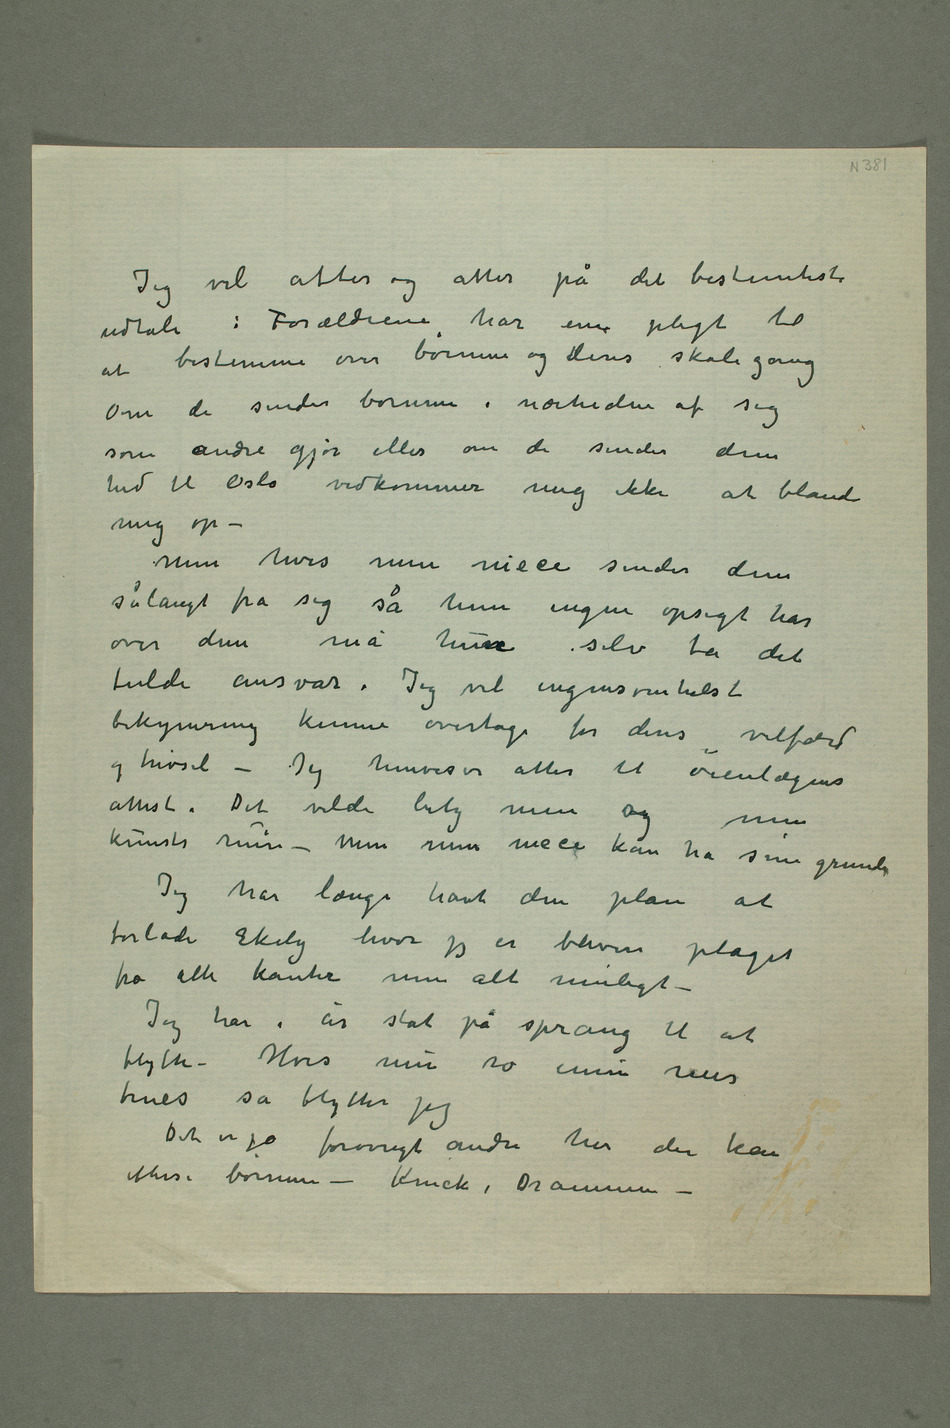 N 381
Jeg vil atter og atter på det bestemteste
udtale : Forældrene har pligt til
at bestemme over børnene og deres skolegang
Om de sender børnene i nærheden af sig
som andre gjør eller om de sender dem
hid til Oslo vedkommer mig ikke at blande
mig op –
Men hvis min niece sender dem
sålangt fra sig så hun ingen opsigt har
over dem må hun selv ta det
fulde ansvar. Jeg vil ingensomhelst
bekymring kunne overtage for deres velfærd
og trivsel – Jeg henviser atter til øienlægens
attest. Det vilde bety min og min
kunsts ruin – Men min niece kan ha sine grunde
Jeg har længe havt den plan at
forlade Ekely hvor jeg er bleven plaget
fra alle kanter men alt muligt –
Jeg har i år ståt på sprang til at
flytte – Hvis min ro ennu mer
trues så flytter jeg
Det er jo forøvrigt andre her der kan
efterse børnene – i Drammen –